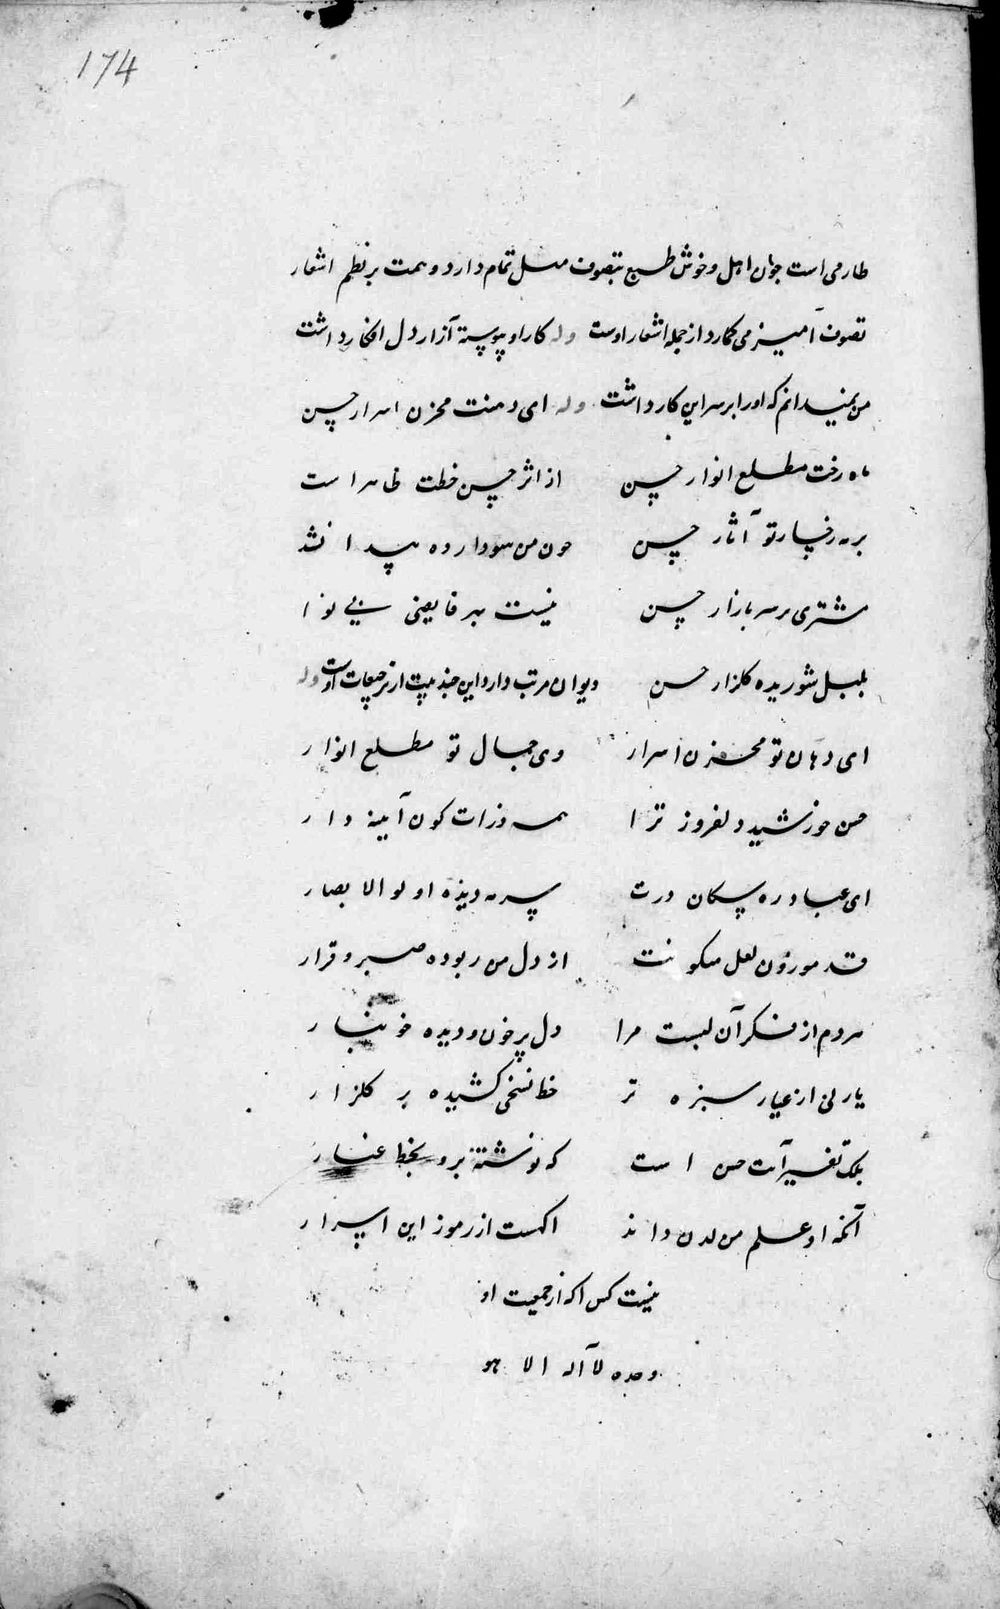 174
طارمی است جوان اهل و خوش طبع بتصوف میل تمام دارد و همت بر نظم اشعار
تصوف آمیز می گمارد از جمله اشعار اوست وله کار او پیوسته آزار دل افکار داشت
من نمیدانم که او را بر سر این کار داشت وله ای دهنت مخزن اسرار حسن
ماه رخت مطلع انوار حسن از اثر حسن خطت ظاهر است
بر مه رخسار تو آثار حسن چون من سودازده پیدا نشد
مشتری بر سر بازار حسن نیست بهر فایضی بی نوا
بلبل شوریده گلزار حسن دیوان مرتب دارد این چند بیت از ترجیعات اوست وله
ای دهان تو مخزن اسرار وی جمال تو مطلع انوار
حسن خورشید دلفروز ترا همه ذرات کون آیینه دار
ای غبار ره سگان درت سرمه دیده اولو الابصار
قد موزون لعل میگونت از دل من ربوده صبر و قرار
مردم از فکر آن لبست مرا دل پر خون و دیده خونبار
یا ز سبزه تر خط نسخی کشیده بر گلزار
بلکه تفسیر آیت حسن است که نوشته برو بخط غبار
آنکه او علم من لدن داند اگهست از رموز این اسرار
نیست کس اگه از جمعیت او
وحده لا آله الا هو